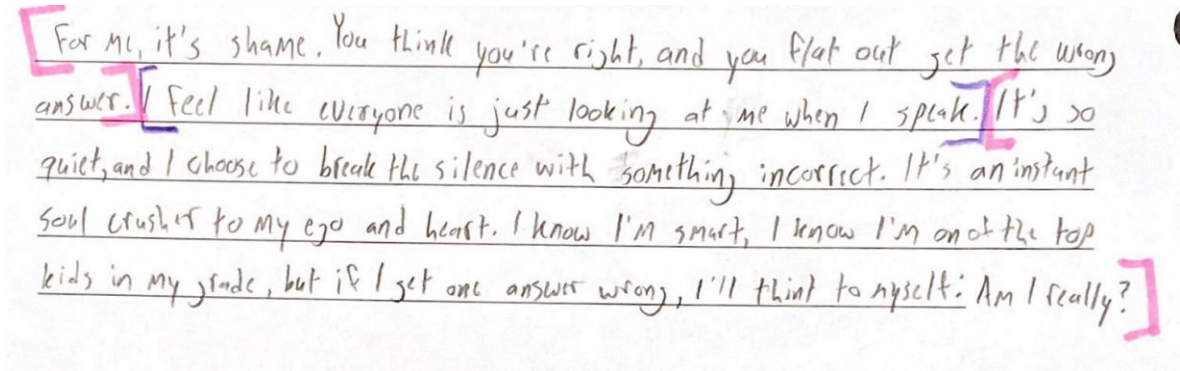 For me, it's shame. You think you're right, and you flat out get the wrong
answer. I feel like everyone is just looking at me when I speak. It's so
quiet, and I choose to break the silence with something incorrect. It's an instant
soul crusher to my ego and heart. I know I'm smart, I know I'm on of the top
kids in my grade, but if I get one answer wrong, I'll think to myself: Am I really?